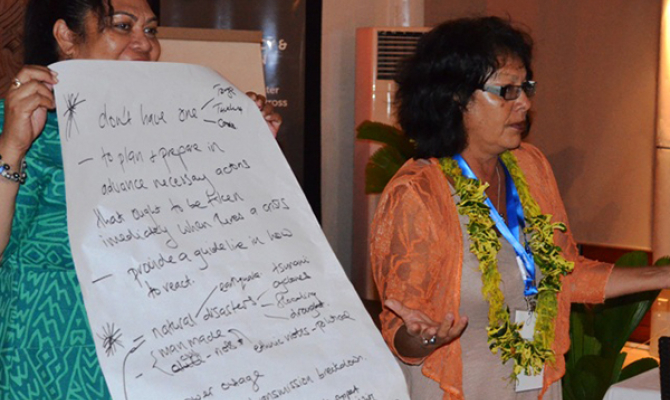 don't have one
Tonga
Tuvalu
Cooks
- to plan + prepare in
advance necessary actions
that ought to be taken
immediately when there's a crisis
- provide a guideline in how
to react.
- natural disasters
earthquake tsunami
cyclones
flooding
drought
man made
riots ethnic riots - political
power outage
transmission breakdown.